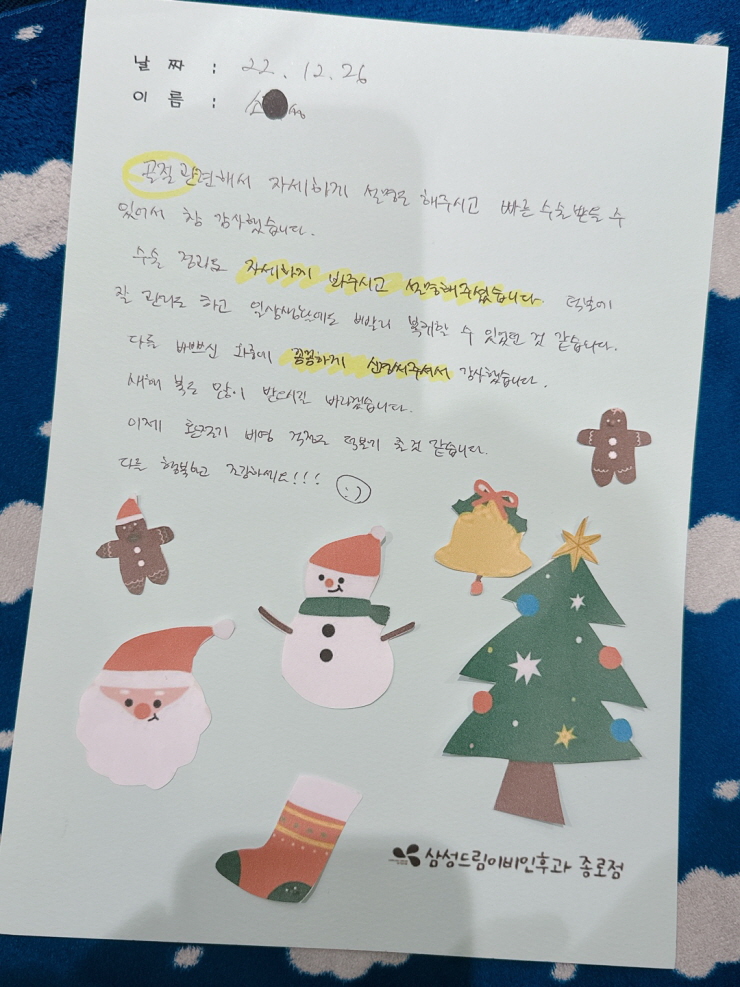 날 짜 : 22.12.26
이 름 : 소
골절 관련해서 자세하게 설명도 해주시고 빠른 수술받을 수
있어서 참 감사했습니다.
수술 경과도 자세하게 봐주시고 설명해주셨습니다. 덕분에
잘 관리도 하고 일상생활에도 빠르게 복귀할 수 있었던 것 같습니다.
다들 바쁘신 와중에 꼼꼼하게 신경써주셔서 감사했습니다.
새해 복도 많이 받으시길 바라겠습니다.
이제 환절기 비염 걱정도 덜 것 같습니다.
다들 행복하고 건강하세요!!! :)
삼성드림이비인후과 종로점